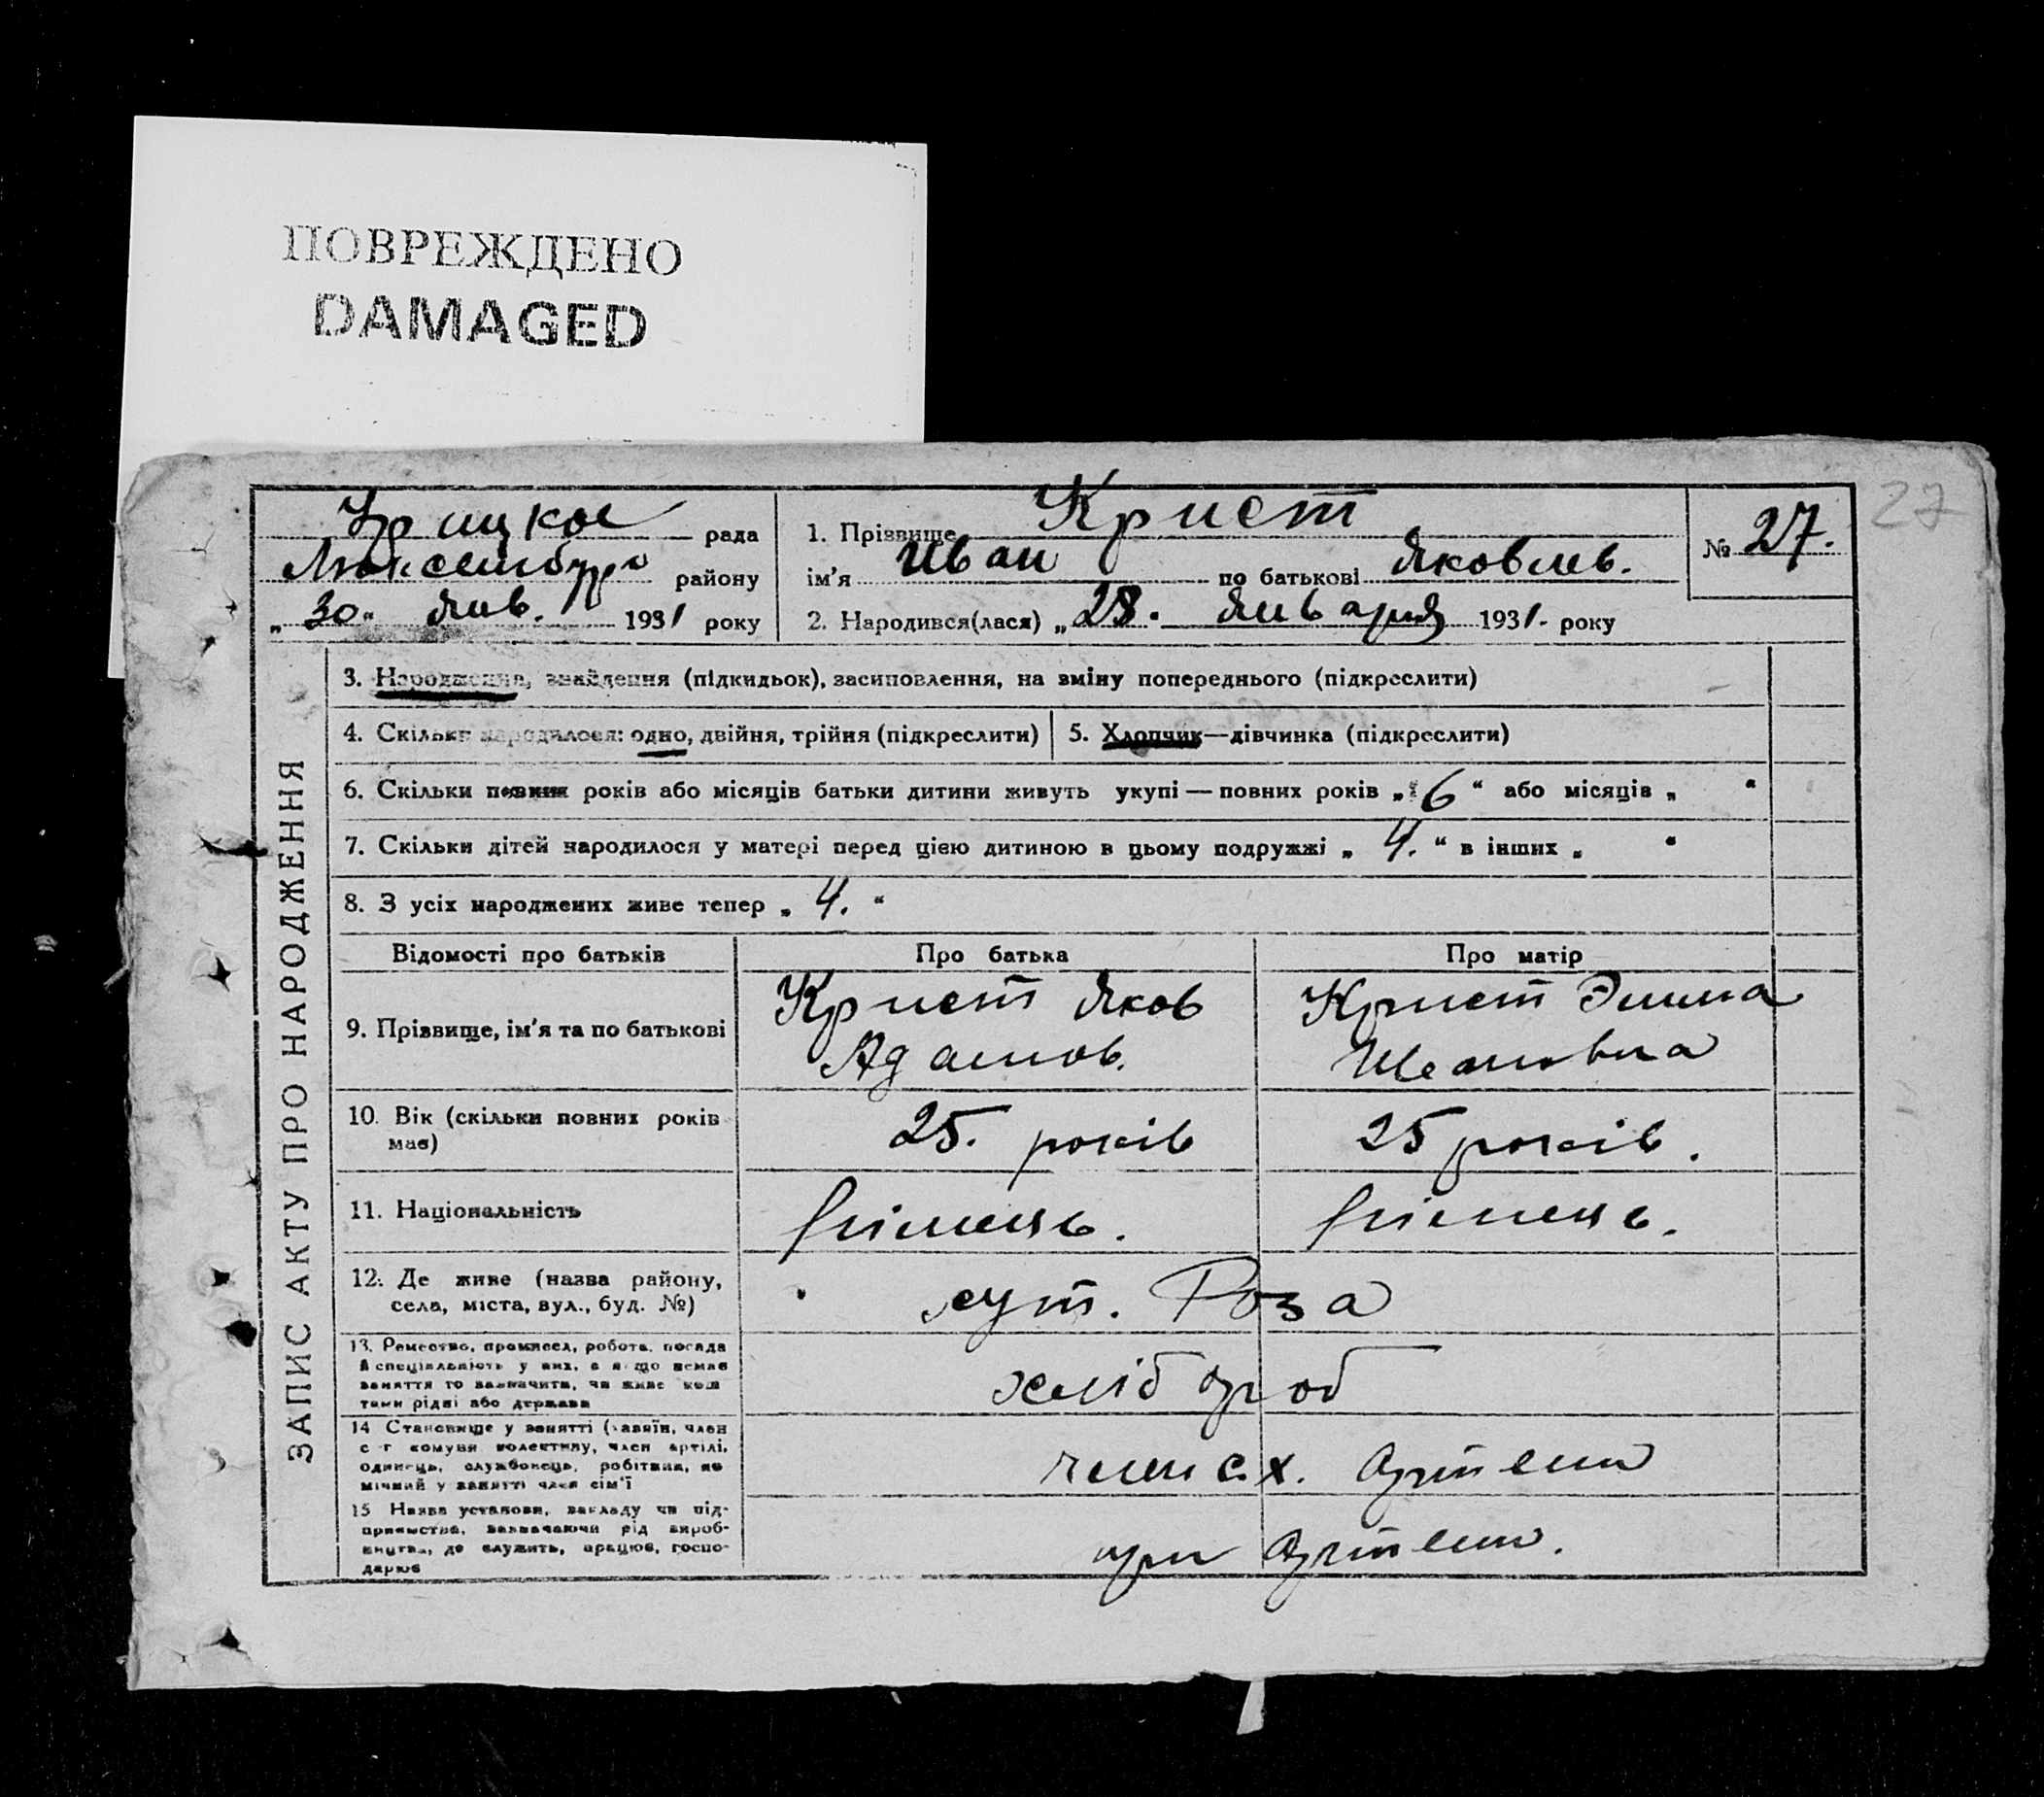 ПОВРЕЖДЕНО
DAMAGED
27
Урицкое рада
Люксембург району
„30“ Янв. 1931 року
1. Прізвище Крист
ім'я Иван по батькові Яковлев.
2. Народився(лася) „28. Января 1931. року
№ 27.
ЗАПИС АКТУ ПРО НАРОДЖЕННЯ
3. Народження, знайдення (підкидьок), засиновлення, на зміну попереднього (підкреслити)
4. Скільки народилося: одно, двійня, трійня (підкреслити)
5. Хлопчик—дівчинка (підкреслити)
6. Скільки повних років або місяців батьки дитини живуть укупі — повних років „6“ або місяців „ “
7. Скільки дітей народилося у матері перед цією дитиною в цьому подружжі „4.“ в інших „ “
8. З усіх народжених живе тепер „4.“
Відомості про батьків Про батька Про матір
9. Прізвище, ім'я та по батькові
Крист Яков
Адамов.
Крист Эмма
10. Вік (скільки повних років має)
25. років
25 років.
11. Національність
німець.
німець.
12. Де живе (назва району,
села, міста, вул., буд. №)
хут. Роза
13. Ремество, промисел, робота, посада
й спеціяльність у них, а якщо немає
заняття то зазначити, чи живе кош
тами рідні або держави
хлібороб
14 Становище у занятті (хазяїн, член
с-г комуни колективу, член артілі,
одинець, службовець, робітник, по
мічний у занятті член сім'ї
член с.х. Артели
15 Назва установи, закладу чи під-
приємства, зазначаючи рід вироб-
ництва, де служить, працює, госпо-
дарює
при Артели.